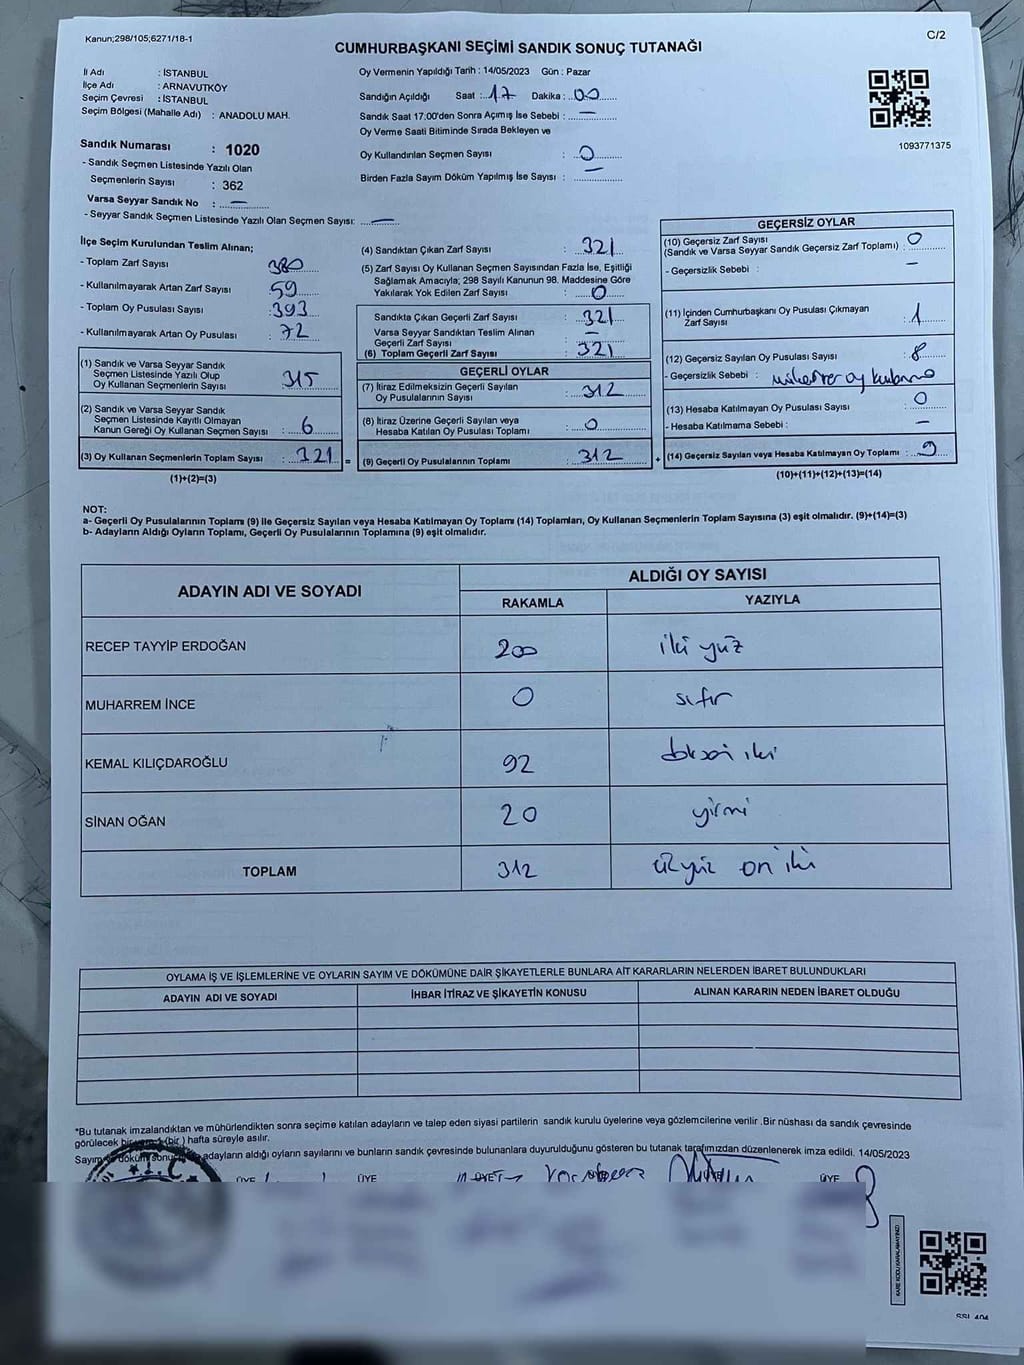 Kanun;298/105;6271/18-1
C/2
CUMHURBAŞKANI SEÇİMİ SANDIK SONUÇ TUTANAĞI
İl Adı : İSTANBUL
İlçe Adı : ARNAVUTKÖY
Seçim Çevresi : İSTANBUL
Seçim Bölgesi (Mahalle Adı) : ANADOLU MAH.
Sandık Numarası : 1020
- Sandık Seçmen Listesinde Yazılı Olan
Seçmenlerin Sayısı : 362
Varsa Seyyar Sandık No : —
- Seyyar Sandık Seçmen Listesinde Yazılı Olan Seçmen Sayısı: —
Oy Vermenin Yapıldığı Tarih : 14/05/2023 Gün : Pazar
Sandığın Açıldığı Saat : 17 Dakika : 00
Sandık Saat 17:00'den Sonra Açımış İse Sebebi : —
Oy Verme Saati Bitiminde Sırada Bekleyen ve
Oy Kullandırılan Seçmen Sayısı : 0
Birden Fazla Sayım Döküm Yapılmış İse Sayısı : —
1093771375
İlçe Seçim Kurulundan Teslim Alınan;
- Toplam Zarf Sayısı : 380
- Kullanılmayarak Artan Zarf Sayısı : 59
- Toplam Oy Pusulası Sayısı : 393
- Kullanılmayarak Artan Oy Pusulası : 72
(1) Sandık ve Varsa Seyyar Sandık
Seçmen Listesinde Yazılı Olup
Oy Kullanan Seçmenlerin Sayısı : 315
(2) Sandık ve Varsa Seyyar Sandık
Seçmen Listesinde Kayıtlı Olmayan
Kanun Gereği Oy Kullanan Seçmen Sayısı : 6
(3) Oy Kullanan Seçmenlerin Toplam Sayısı : 321 =
(1)+(2)=(3)
(4) Sandıktan Çıkan Zarf Sayısı : 321
(5) Zarf Sayısı Oy Kullanan Seçmen Sayısından Fazla İse, Eşitliği
Sağlamak Amacıyla; 298 Sayılı Kanunun 98. Maddesine Göre
Yakılarak Yok Edilen Zarf Sayısı : 0
Sandıkta Çıkan Geçerli Zarf Sayısı : 321
Varsa Seyyar Sandıktan Teslim Alınan
Geçerli Zarf Sayısı : —
(6) Toplam Geçerli Zarf Sayısı : 321
GEÇERLİ OYLAR
(7) İtiraz Edilmeksizin Geçerli Sayılan
Oy Pusulalarının Sayısı : 312
(8) İtiraz Üzerine Geçerli Sayılan veya
Hesaba Katılan Oy Pusulası Toplamı : 0
(9) Geçerli Oy Pusulalarının Toplamı : 312 +
GEÇERSİZ OYLAR
(10) Geçersiz Zarf Sayısı
(Sandık ve Varsa Seyyar Sandık Geçersiz Zarf Toplamı) : 0
- Geçersizlik Sebebi : —
(11) İçinden Cumhurbaşkanı Oy Pusulası Çıkmayan
Zarf Sayısı : 1
(12) Geçersiz Sayılan Oy Pusulası Sayısı : 8
- Geçersizlik Sebebi :
(13) Hesaba Katılmayan Oy Pusulası Sayısı : 0
- Hesaba Katılmama Sebebi : —
(14) Geçersiz Sayılan veya Hesaba Katılmayan Oy Toplamı : 9
(10)+(11)+(12)+(13)=(14)
NOT:
a- Geçerli Oy Pusulalarının Toplamı (9) ile Geçersiz Sayılan veya Hesaba Katılmayan Oy Toplamı (14) Toplamları, Oy Kullanan Seçmenlerin Toplam Sayısına (3) eşit olmalıdır. (9)+(14)=(3)
b- Adayların Aldığı Oyların Toplamı, Geçerli Oy Pusulalarının Toplamına (9) eşit olmalıdır.
ADAYIN ADI VE SOYADI ALDIĞI OY SAYISI
RAKAMLA YAZIYLA
RECEP TAYYİP ERDOĞAN 200 iki yüz
MUHARREM İNCE 0 sıfır
KEMAL KILIÇDAROĞLU 92 doksan iki
SİNAN OĞAN 20 yirmi
TOPLAM 312 üçyüz on iki
OYLAMA İŞ VE İŞLEMLERİNE VE OYLARIN SAYIM VE DÖKÜMÜNE DAİR ŞİKAYETLERLE BUNLARA AİT KARARLARIN NELERDEN İBARET BULUNDUKLARI
ADAYIN ADI VE SOYADI İHBAR İTİRAZ VE ŞİKAYETİN KONUSU ALINAN KARARIN NEDEN İBARET OLDUĞU
*Bu tutanak imzalandıktan ve mühürlendikten sonra seçime katılan adayların ve talep eden siyasi partilerin sandık kurulu üyelerine veya gözlemcilerine verilir .Bir nüshası da sandık çevresinde
görülecek bir yere 1 (bir ) hafta süreyle asılır.
Sayım ve döküm sonucu adayların aldığı oyların sayılarını ve bunların sandık çevresinde bulunanlara duyurulduğunu gösteren bu tutanak tarafımızdan düzenlenerek imza edildi. 14/05/2023
T.C
ÜYE ÜYE ÜYE ÜYE
KARE KODU KARALAMAYINIZ!